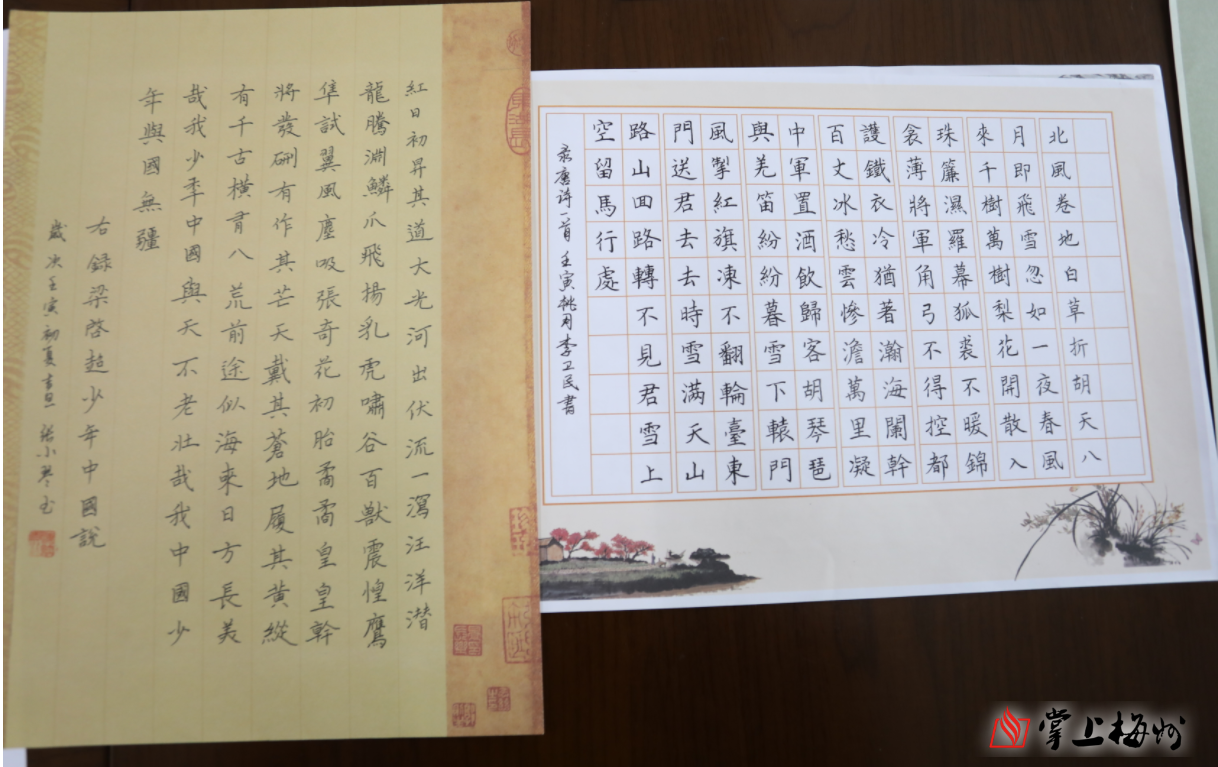 紅日初昇其道大光河出伏流一瀉汪洋潛
龍騰淵鱗爪飛揚乳虎嘯谷百獸震惶鷹
隼試翼風塵吸張奇花初胎矞矞皇皇幹
將發硎有作其芒天戴其蒼地履其黄縱
有千古橫有八荒前途似海來日方長美
哉我少年中國與天不老壯哉我中國少
年與國無疆
右錄梁啓超少年中國說
歲次壬寅初夏 小琴
北風卷地白草折胡天八
月即飛雪忽如一夜春風
來千樹萬樹梨花開散入
珠簾濕羅幕狐裘不暖錦
衾薄將軍角弓不得控都
護鐵衣冷猶著瀚海闌幹
百丈冰愁雲慘澹萬里凝
中軍置酒飲歸客胡琴琶
與羌笛紛紛暮雪下轅門
風掣紅旗凍不翻輪臺東
門送君去去時雪满天山
路山回路轉不見君雪上
空留馬行處
录唐诗一首 壬寅桃月李卫民書
掌上梅州